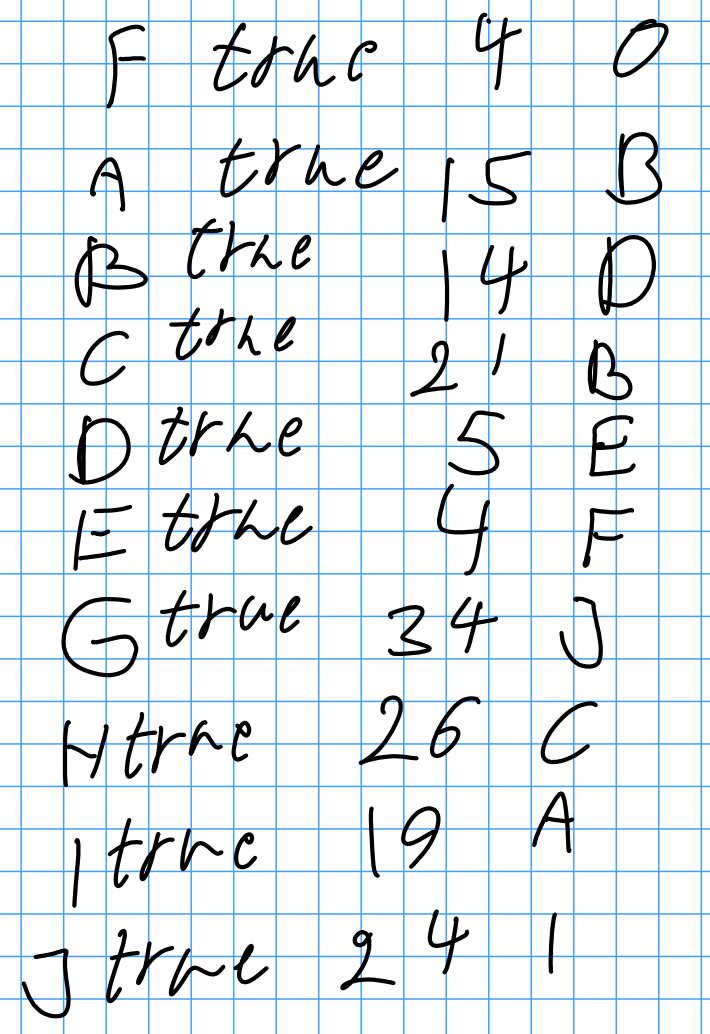 F true 4 0
A true 15 B
B true 14 D
C true 21 B
D true 5 E
E true 4 F
G true 34 J
H true 26 C
I true 19 A
J true 24 I